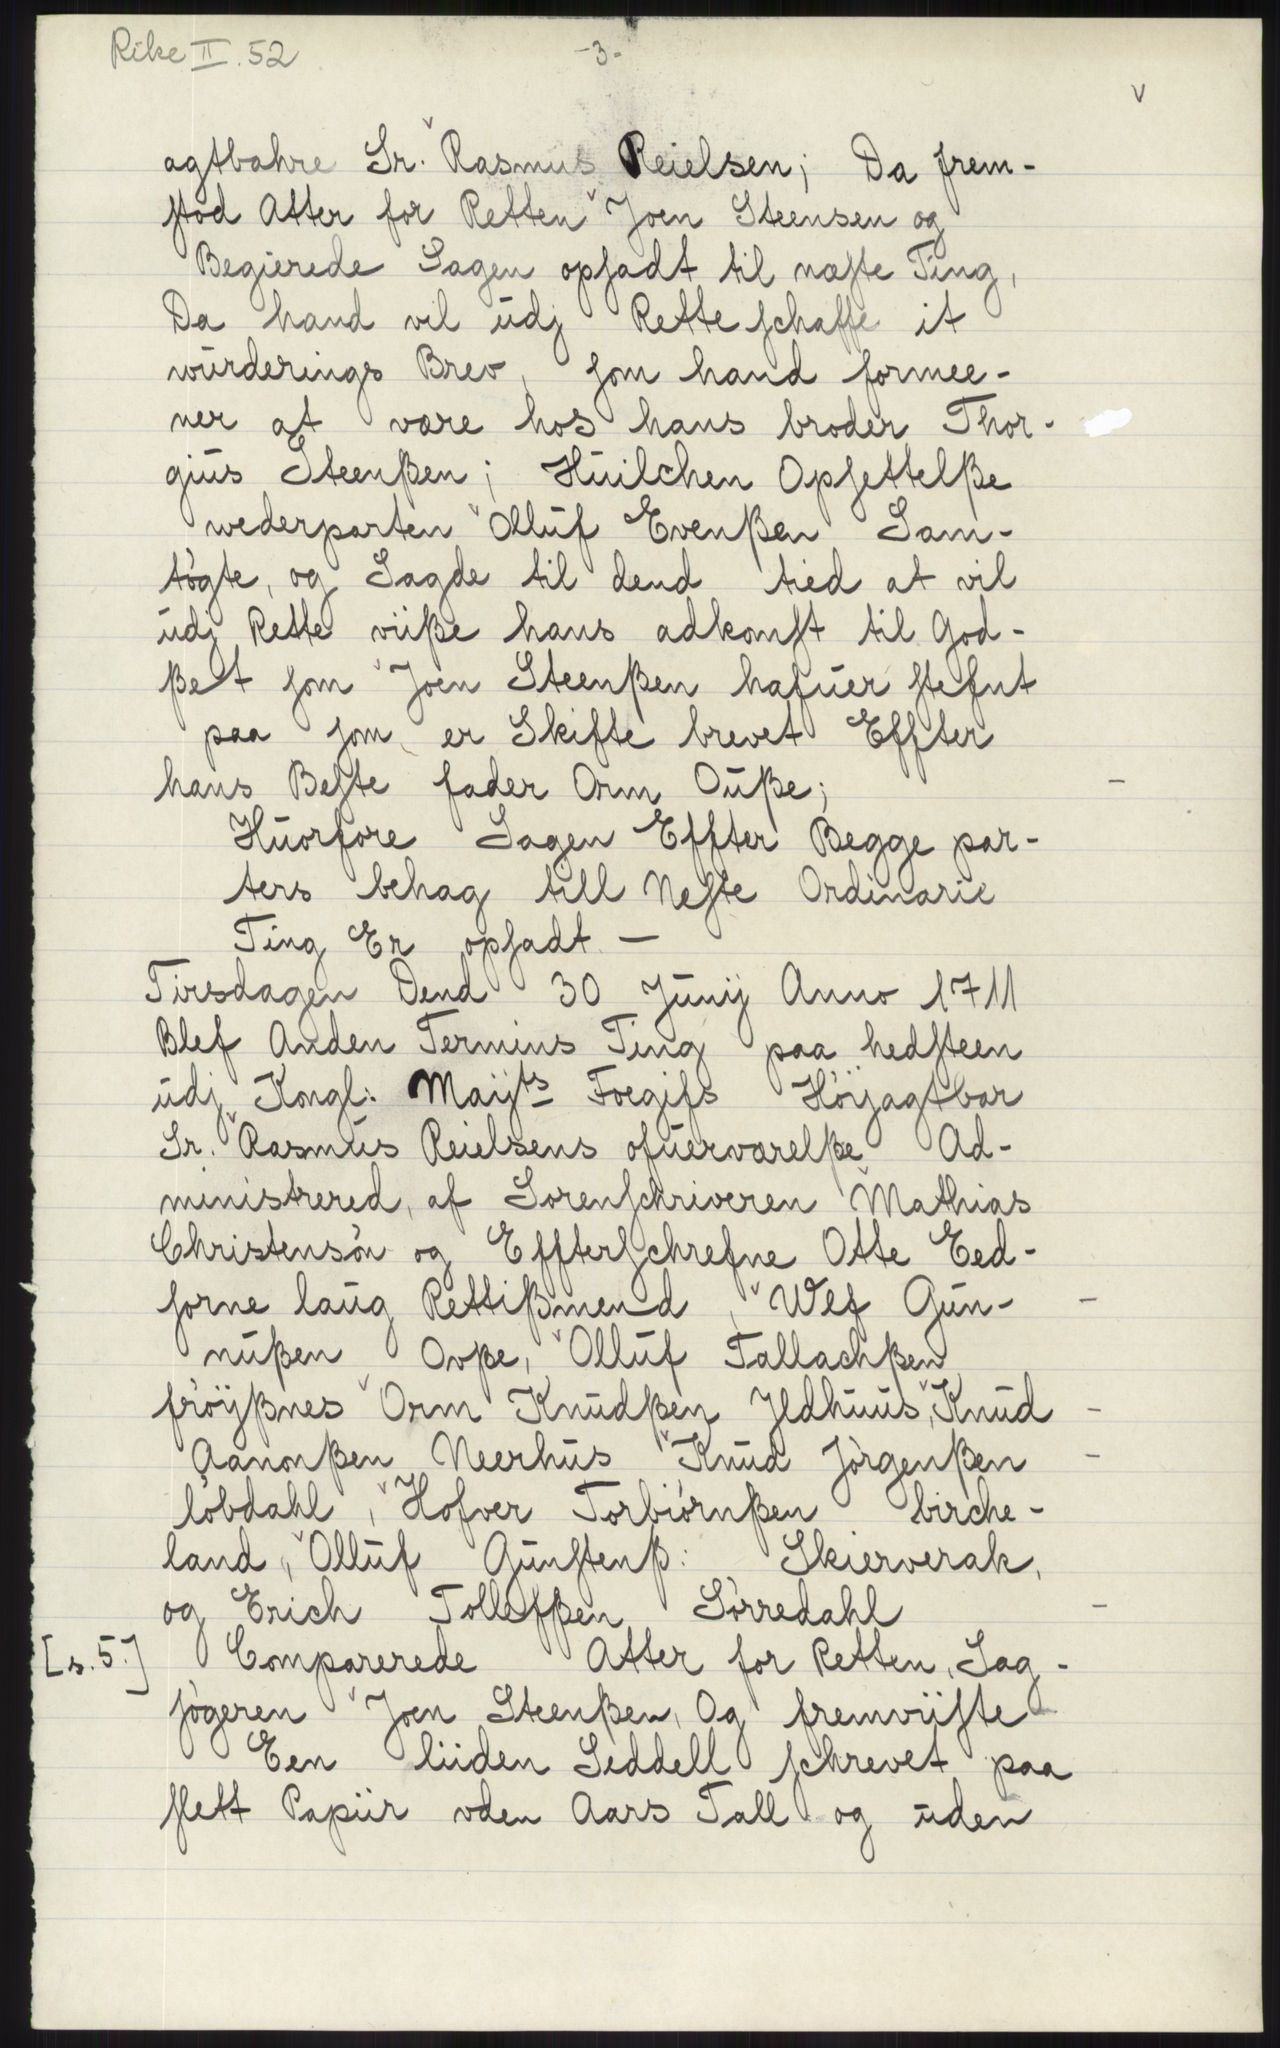 Rike II. 52
-3-
v
agtbahre Sr. Rasmus Reielsen; Da frem-
stod Atter for Retten Joen Steensen og
Begierede Sagen opsadt til næste Ting,
Da hand vil udj Rette schaffe it
wurderings Brev, som hand formee-
ner at være hos hans broder Thor-
gius Steenßen; Huilchen Opsettelße
wederparten Olluf Evenßen Sam-
tøgte, og Sagde til dend tied at vil
udj Rette viiße hans adkomst til God-
ßet som Joen Steenßen hafuer stefnt
paa som er Skifte brevet Effter
hans Beste fader Orm Oußе;
Huorfore Sagen Effter Begge par-
ters behag till Neste Ordinarie
Ting Er opsadt —
Tirsdagen Dend 30 Junij Anno 1711
Blef Anden Termins Ting paa hedsteen
udj Kongl: Maijts Foegifs Høijagtbar
Sr. Rasmus Reielsens ofuerværelße Ad-
ministrered, af Sorenschriveren Mathias
Christensøn og Effterschrefne Otte Eed-
sorne laug Rettißmend, Wlf Gun-
nußen Ovße, Olluf Tallachßen
frøyßnes Orm Knudßen Jldhuus, Knud
Aanonßen Neerhus Knud Jørgenßen
løbdahl, Hofver Torbiørnßen birche-
land, Olluf Gunstenß: Skierverak,
og Erich Tollefßen Sørredahl
[s. 5.] Comparerede Atter for Retten, Sag-
søgeren Joen Steenßen, Og fremviiste
Een liiden Seddell schrevet paa
slett Papiir vden Aars Tall og uden